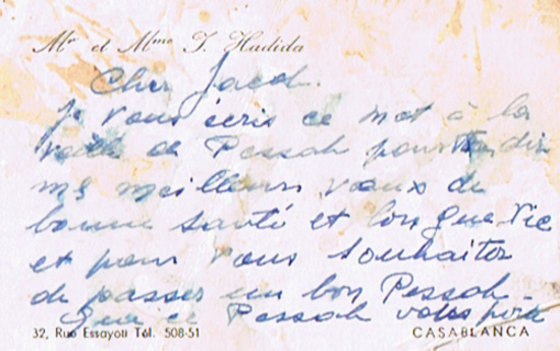 Mr et Mme J. Hadida
Cher Jacob.
je vous écris ce mot à la
veille de Pessah pour dir
mes meilleurs vœux de
bonne santé et longue vie
et pour vous souhaiter
de passer un bon Pessah.
Que ce Pessah vous
32, Rue Essayoti Tél. 508-51
CASABLANCA